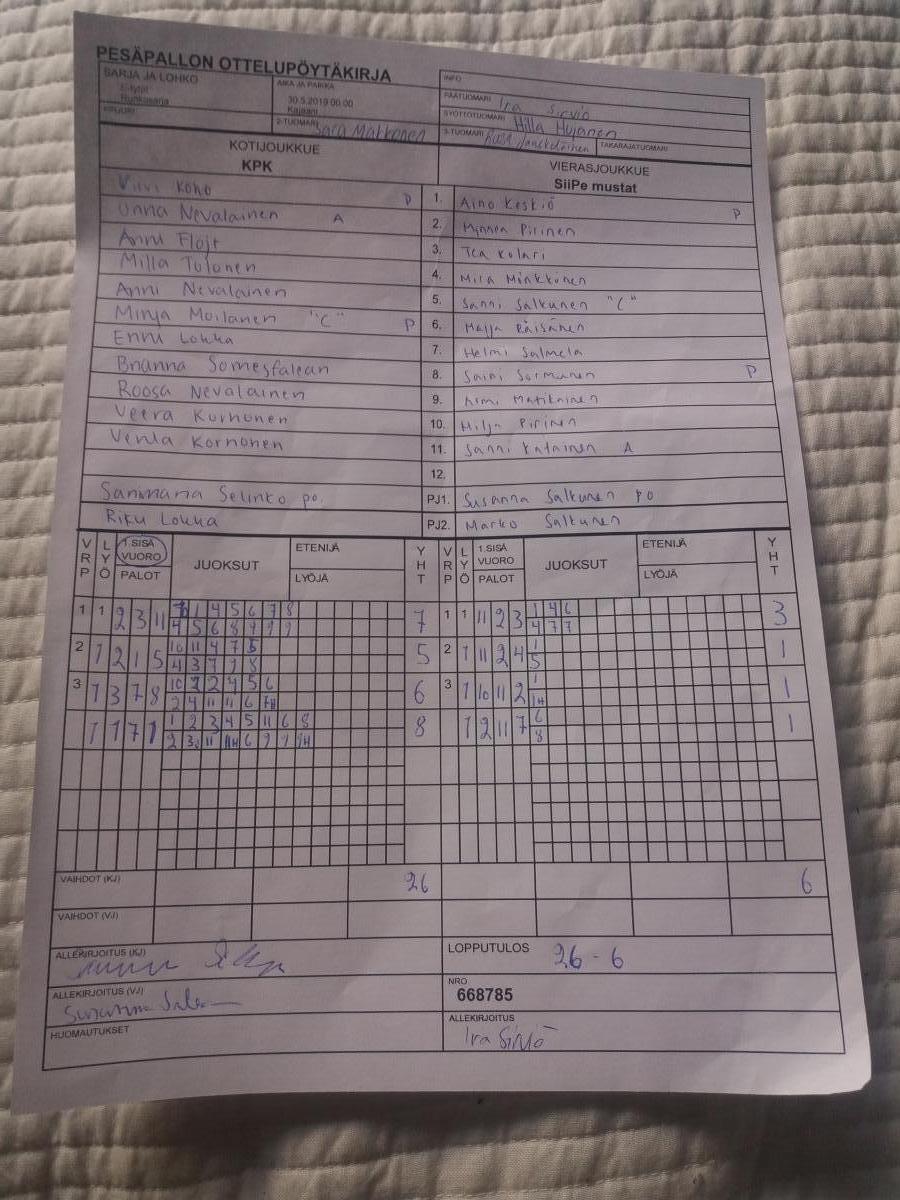 PESÄPALLON OTTELUPÖYTÄKIRJA
SARJA JA LOHKO
E-tytöt
Runkosarja
KIRJURI
AIKA JA PAIKKA
30.5.2019 00:00
Kajaani
2-TUOMARI Sara Matkonen
INFO
PÄÄTUOMARI Ira Sirviö
SYÖTTÖTUOMARI Hilla Hujanen
3-TUOMARI
TAKARAJATUOMARI
KOTIJOUKKUE
KPK
VIERASJOUKKUE
SiiPe mustat
Viivi Koho P 1. Aino Keskiö P
Unna Nevalainen A 2. Minnea Pirinen
Annu Flöjt 3. Tea Kolari
Milla Tolonen 4. Mila Minkkinen
Anni Nevalainen 5. Sanni Salkunen "C"
Minja Moilanen "C" P 6. Maija Räisänen
Ennu Lokka 7. Helmi Salmela
Brianna Somesfalean 8. Saini Sormunen P
Roosa Nevalainen 9. Armi Matikainen
Veera Korhonen 10. Milja Pirinen
Venla Korhonen 11. Sanni Katainen A
12.
Sanmaria Selinko po. PJ1. Susanna Salkunen po
Riku Lokka PJ2. Marko Salkunen
VRP LYÖ 1.SISÄ VUORO PALOT JUOKSUT ETENIJÄ LYÖJÄ YHT VRP LYÖ 1.SISÄ VUORO PALOT JUOKSUT ETENIJÄ LYÖJÄ YHT
1 1 2 3 11 1 4 5 6 7 8 7 1 1 11 2 3 1 4 6 3
4 5 6 8 9 9 9 4 7 7
2 1 2 1 5 10 11 4 7 5 5 2 1 11 2 4 1 1
4 3 7 7 8 5
3 1 3 7 8 10 1 2 4 5 6 6 3 1 10 11 2 1 1
2 4 11 11 6 7H 1H
1 1 7 1 1 2 3 4 5 11 6 8 8 1 2 11 7 6 1
2 3 11 11H 6 9 9 1H 8
VAIHDOT (KJ) 26 6
VAIHDOT (VJ)
ALLEKIRJOITUS (KJ)
LOPPUTULOS 26 - 6
ALLEKIRJOITUS (VJ)
NRO
668785
HUOMAUTUKSET
ALLEKIRJOITUS
Ira Sirviö